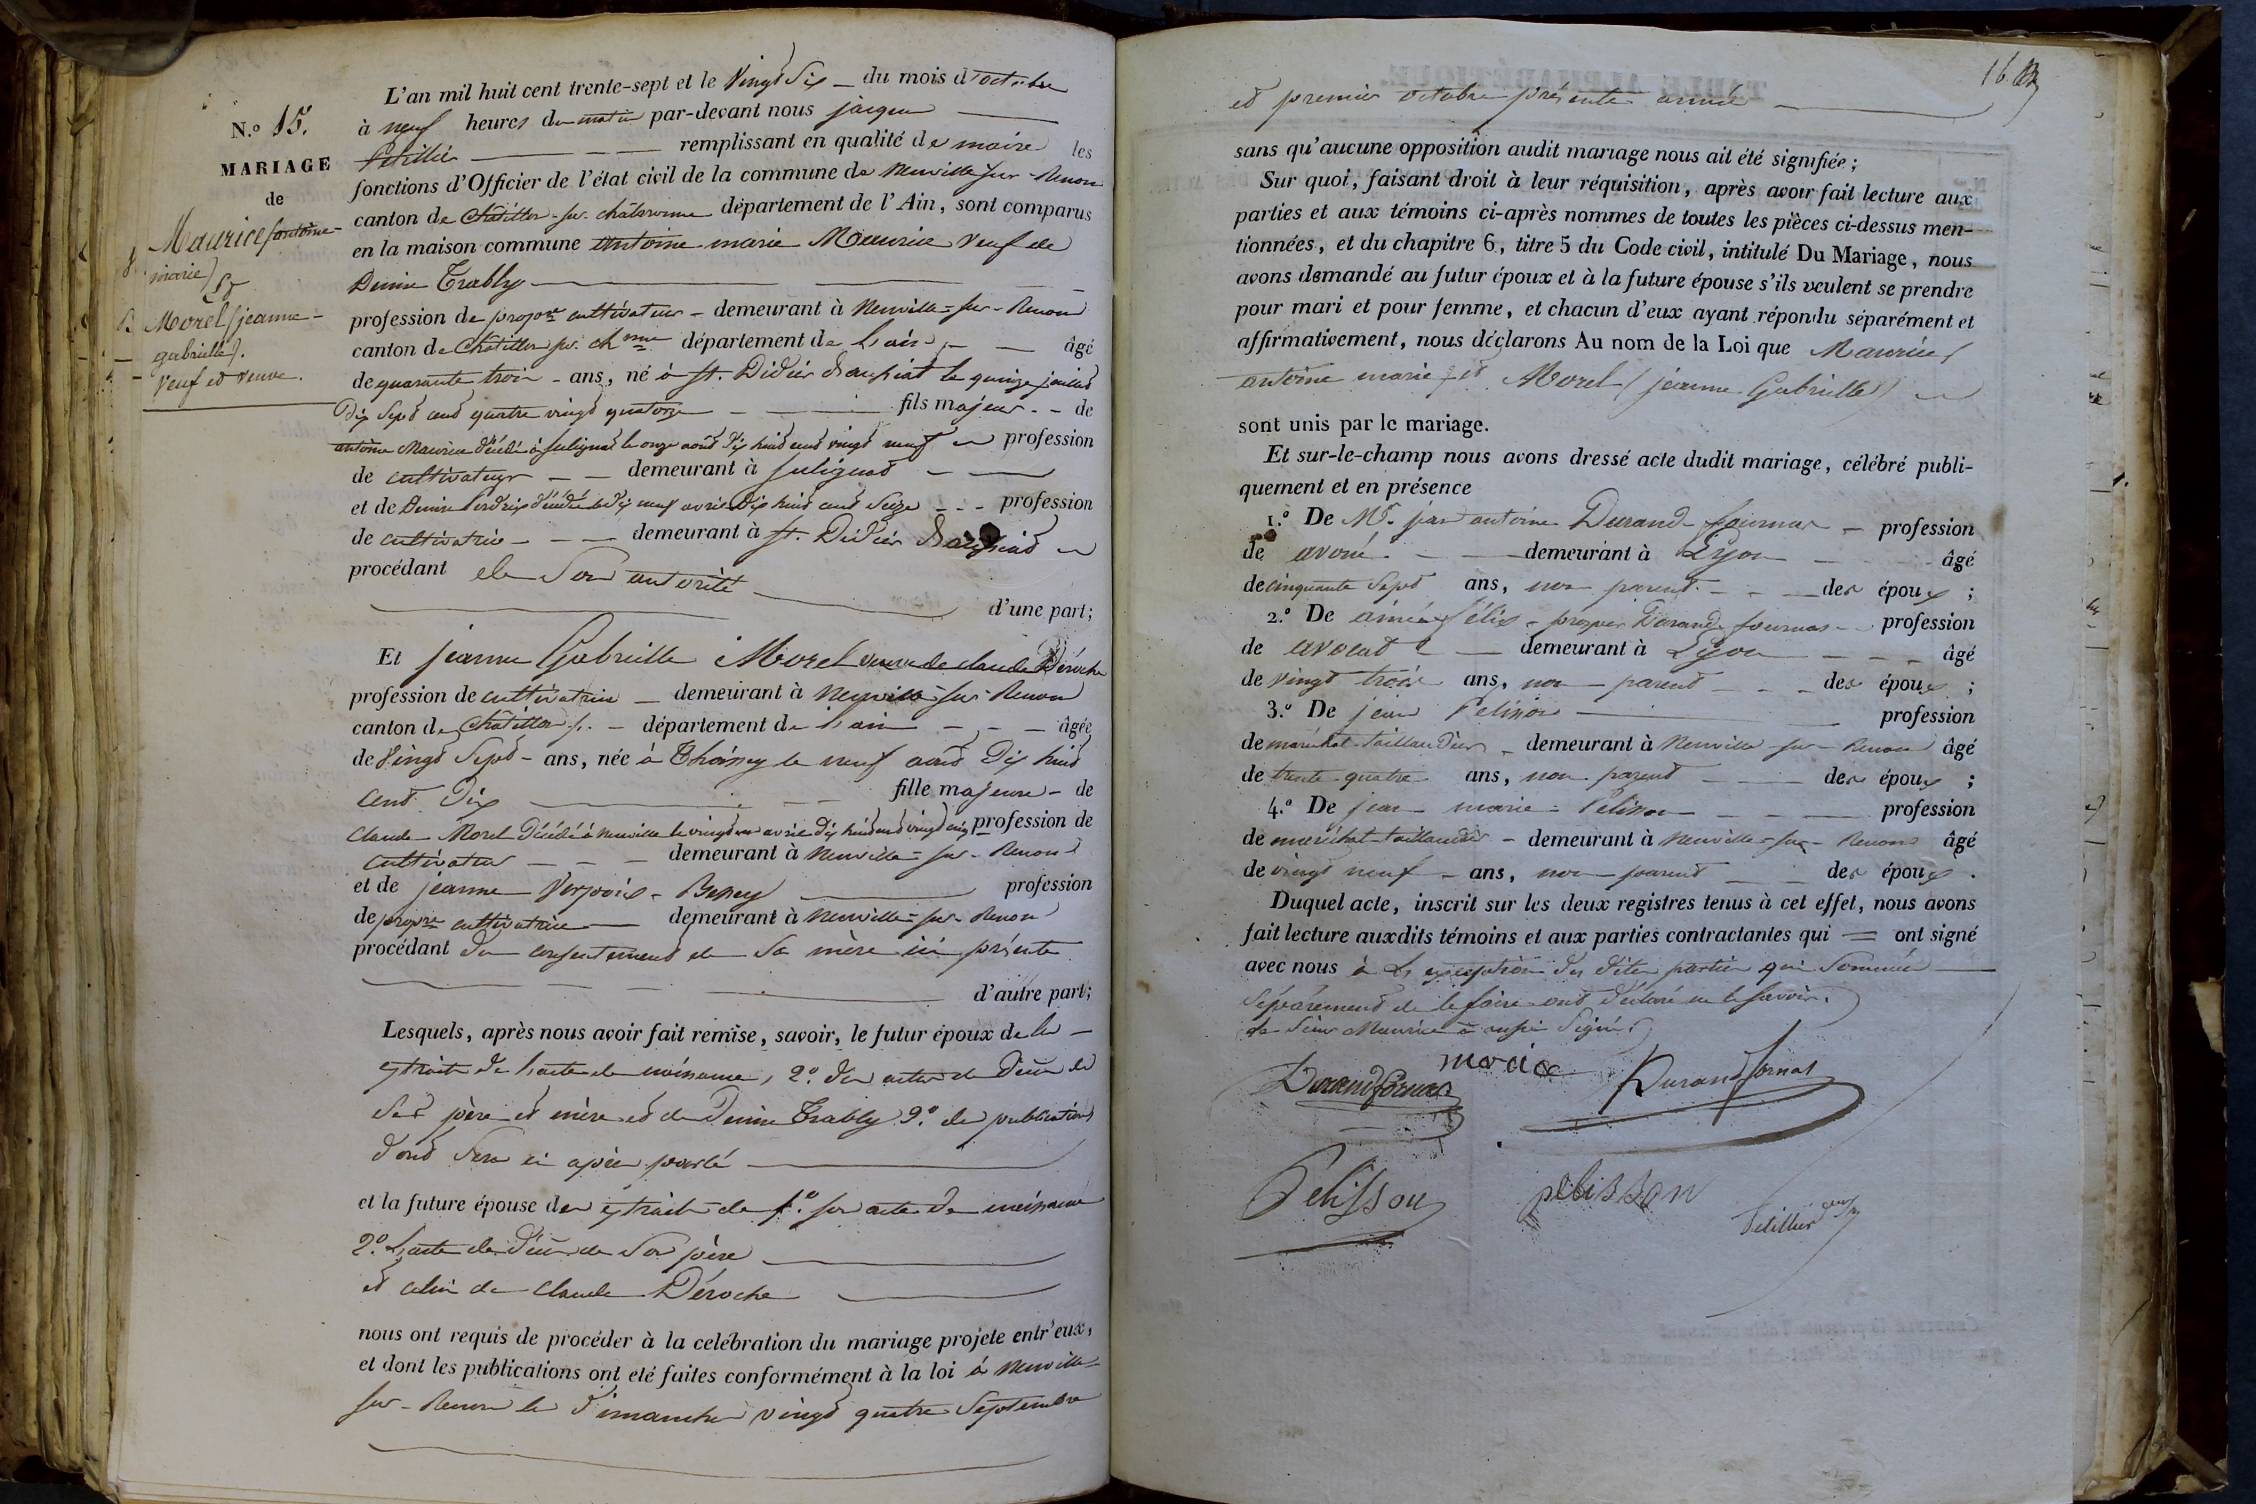 N.o 15.
MARIAGE
de
Maurice (antoine-
marie)
et
Morel (jeanne-
gabrielle).
veuf et veuve.
L'an mil huit cent trente-sept et le vingt Six du mois d'octobre
à neuf heures du matin par-devant nous jacques
Petillier remplissant en qualité de maire les
fonctions d'Officier de l'état civil de la commune de Neuville-sur-Renon
canton de Châtillon-sur-chalaronne département de l'Ain, sont comparus
en la maison commune antoine marie Maurice veuf de
Denise Trably
profession de propre cultivateur demeurant à Neuville-sur-Renon
canton de Châtillon sr. chnne département de L'ain âgé
de quarante trois ans, né à St. Didier d'aussiat le quinze juillet
Dix Sept cent quatre vingt quatorze fils majeur de
antoine Maurice décédé à Sulignat le onze août dix huit cent vingt neuf profession
de cultivateur demeurant à Sulignat
et de Denise Perdrix décédée le dix neuf avril dix huit cent Seize profession
de cultivatrice demeurant à St. Didier d'aussiat
procédant de Son autorité
d'une part;
Et jeanne Gabrielle Morel veuve de claude Déroche
profession de cultivatrice demeurant à Neuville-sur-Renon
canton de Châtillon s. département de L'ain âgée
de vingt Sept ans, née à Thoissey le neuf août Dix huit
cent Dix fille majeure de
Claude Morel Décédé à Neuville le vingt un avril dix huit cent vingt cinq profession de
cultivateur demeurant à Neuville-sur-Renon
et de jeanne Verpoix Beney profession
de propre cultivatrice demeurant à Neuville-sur-Renon
procédant du consentement de Sa mère ici présente
d'autre part;
Lesquels, après nous avoir fait remise, savoir, le futur époux de les
extraits de l'acte de naissance, 2.o des actes de Décès de
Ses père et mère et de Denise Trably 3.o de publications
dont Sera ci après parlé
et la future épouse des extraits de 1.o son acte de naissance
2.o L'acte de décès de Son père
et celui de claude Déroche
nous ont requis de procéder à la celébration du mariage projeté entr'eux,
et dont les publications ont eté faites conformément à la loi à Neuville-
sur-Renon les dimanches vingt quatre Septembre
16
et premier octobre présente année
sans qu'aucune opposition audit mariage nous ait été signifiée;
Sur quoi, faisant droit à leur réquisition, après avoir fait lecture aux
parties et aux témoins ci-après nommes de toutes les pièces ci-dessus men-
tionnées, et du chapitre 6, titre 5 du Code civil, intitulé Du Mariage, nous
avons demandé au futur époux et à la future épouse s'ils veulent se prendre
pour mari et pour femme, et chacun d'eux ayant répondu séparément et
affirmativement, nous déclarons Au nom de la Loi que Maurice (
antoine marie) et Morel (jeanne Gabrielle)
sont unis par le mariage.
Et sur-le-champ nous avons dressé acte dudit mariage, célébré publi-
quement et en présence
1.o De Mr. jean antoine Durand fournas profession
de avoué demeurant à Lyon âgé
de cinquante Sept ans, non parent des époux;
2.o De aimé félix prosper Durand fournas profession
de avocat demeurant à Lyon âgé
de vingt trois ans, non parent des époux;
3.o De jean Pelisson profession
de maréchal-taillandier demeurant à Neuville-sur-Renon âgé
de trente quatre ans, non parent des époux;
4.o De jean marie Pelisson profession
de maréchal-taillandier demeurant à Neuville-sur-Renon âgé
de vingt neuf ans, non parent des époux.
Duquel acte, inscrit sur les deux registres tenus à cet effet, nous avons
fait lecture auxdits témoins et aux parties contractantes qui ont signé
avec nous à L'exception des dites parties qui Sommées
Séparément de le faire ont déclaré ne le Savoir.
Le Sieur Maurice a aussi Signé.
Durandfornas
Durand fornas
Pelisson
pelisson
Petillier